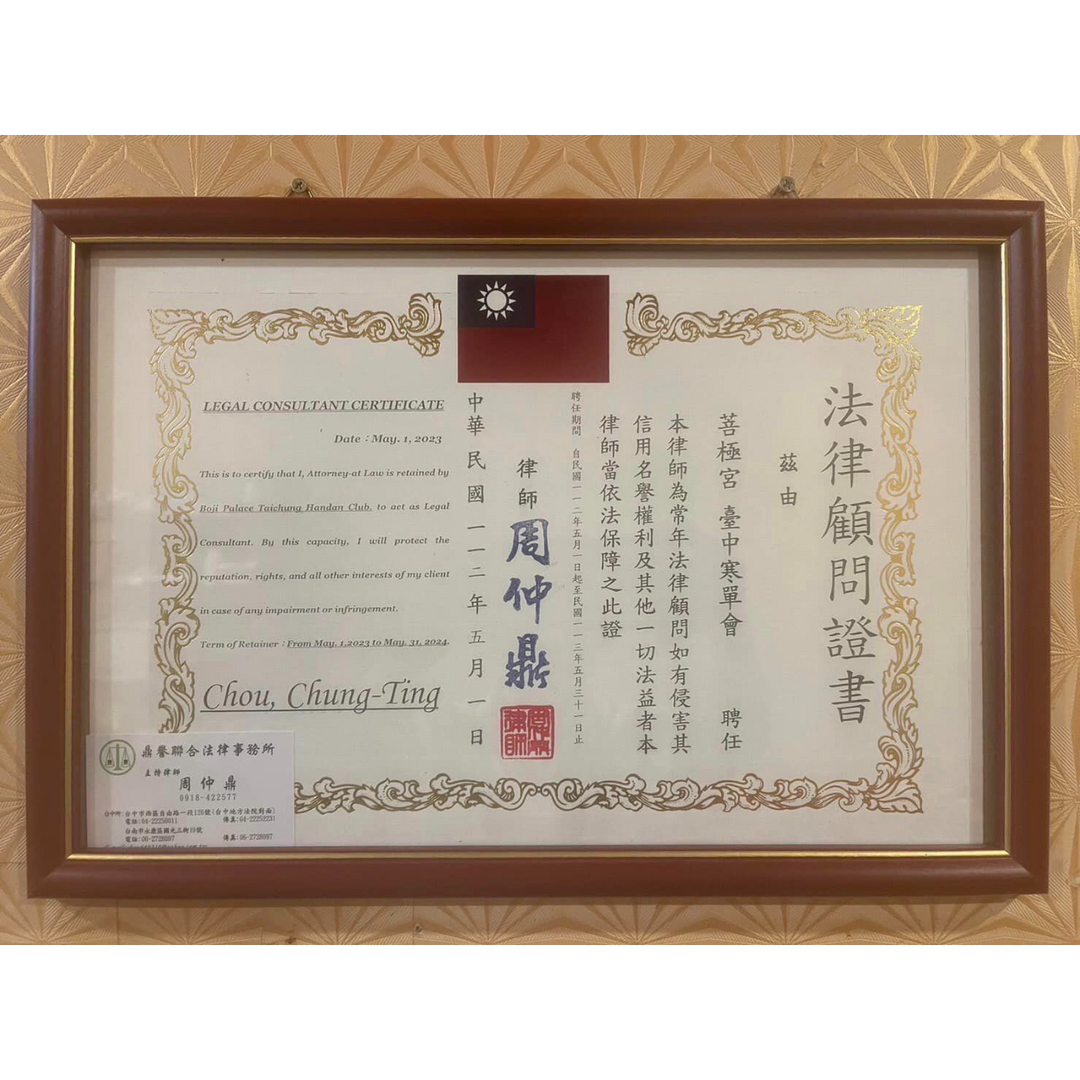 法律顧問證書
茲由
菩極宮 臺中寒單會 聘任
本律師為常年法律顧問如有侵害其
信用名譽權利及其他一切法益者本
律師當依法保障之此證
聘任期間 自民國一一二年五月一日起至民國一一三年五月三十一日止
律師 周仲鼎
中華民國一一二年五月一日
LEGAL CONSULTANT CERTIFICATE
Date：May. 1, 2023
This is to certify that I, Attorney-at Law is retained by
Boji Palace Taichung Handan Club. to act as Legal
Consultant. By this capacity, I will protect the
reputation, rights, and all other interests of my client
in case of any impairment or infringement.
Term of Retainer：From May. 1,2023 to May. 31, 2024.
Chou, Chung-Ting
鼎譽聯合法律事務所
主持律師
周仲鼎
0918-422577
台中所:台中市西區自由路一段120號(台中地方法院對面)
電話:04-22250011 傳真:04-22252231
台南市永康區國光三街19號
電話:06-2728097 傳真:06-2728097